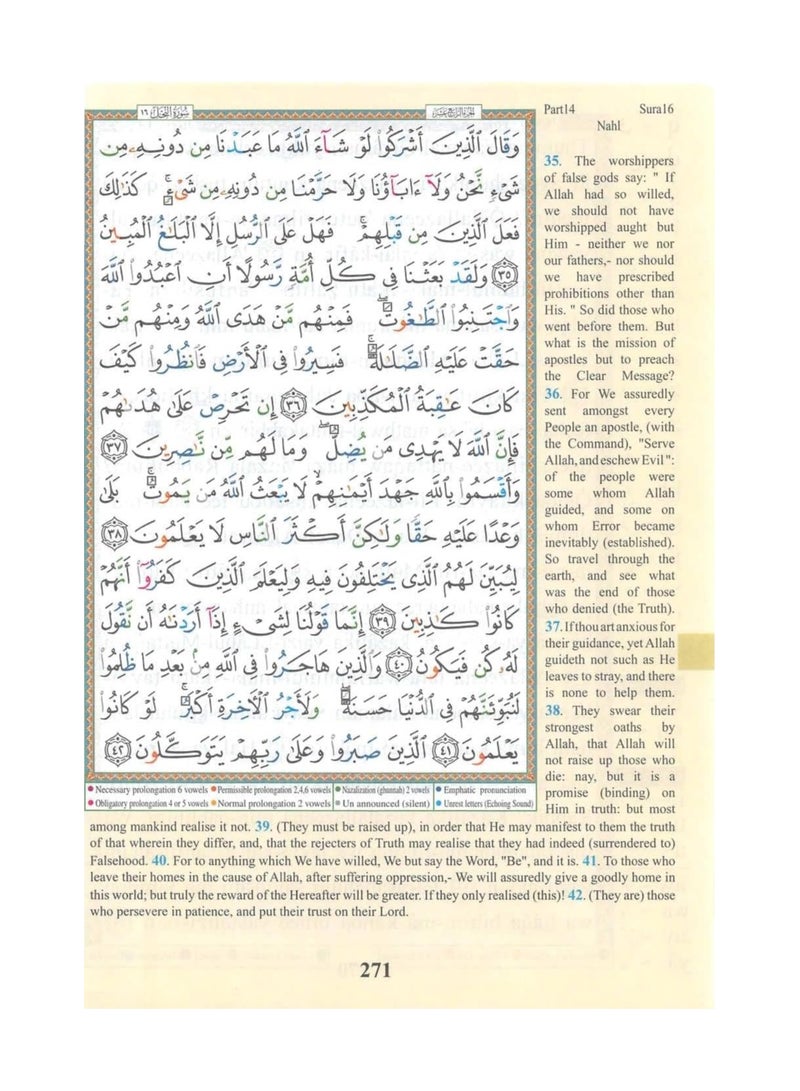 سُورَةُ النَّحْلِ ١٦
الجزء الرابع عشر
وَقَالَ ٱلَّذِينَ أَشْرَكُوا۟ لَوْ شَآءَ ٱللَّهُ مَا عَبَدْنَا مِن دُونِهِۦ مِن
شَىْءٍ نَّحْنُ وَلَآ ءَابَآؤُنَا وَلَا حَرَّمْنَا مِن دُونِهِۦ مِن شَىْءٍ ۚ كَذَٰلِكَ
فَعَلَ ٱلَّذِينَ مِن قَبْلِهِمْ ۚ فَهَلْ عَلَى ٱلرُّسُلِ إِلَّا ٱلْبَلَٰغُ ٱلْمُبِينُ
٣٥ وَلَقَدْ بَعَثْنَا فِى كُلِّ أُمَّةٍ رَّسُولًا أَنِ ٱعْبُدُوا۟ ٱللَّهَ
وَٱجْتَنِبُوا۟ ٱلطَّٰغُوتَ ۖ فَمِنْهُم مَّنْ هَدَى ٱللَّهُ وَمِنْهُم مَّنْ
حَقَّتْ عَلَيْهِ ٱلضَّلَٰلَةُ ۚ فَسِيرُوا۟ فِى ٱلْأَرْضِ فَٱنظُرُوا۟ كَيْفَ
كَانَ عَٰقِبَةُ ٱلْمُكَذِّبِينَ ٣٦ إِن تَحْرِصْ عَلَىٰ هُدَىٰهُمْ
فَإِنَّ ٱللَّهَ لَا يَهْدِى مَن يُضِلُّ ۖ وَمَا لَهُم مِّن نَّٰصِرِينَ ٣٧
وَأَقْسَمُوا۟ بِٱللَّهِ جَهْدَ أَيْمَٰنِهِمْ ۙ لَا يَبْعَثُ ٱللَّهُ مَن يَمُوتُ ۚ بَلَىٰ
وَعْدًا عَلَيْهِ حَقًّا وَلَٰكِنَّ أَكْثَرَ ٱلنَّاسِ لَا يَعْلَمُونَ ٣٨
لِيُبَيِّنَ لَهُمُ ٱلَّذِى يَخْتَلِفُونَ فِيهِ وَلِيَعْلَمَ ٱلَّذِينَ كَفَرُوٓا۟ أَنَّهُمْ
كَانُوا۟ كَٰذِبِينَ ٣٩ إِنَّمَا قَوْلُنَا لِشَىْءٍ إِذَآ أَرَدْنَٰهُ أَن نَّقُولَ
لَهُۥ كُن فَيَكُونُ ٤٠ وَٱلَّذِينَ هَاجَرُوا۟ فِى ٱللَّهِ مِنۢ بَعْدِ مَا ظُلِمُوا۟
لَنُبَوِّئَنَّهُمْ فِى ٱلدُّنْيَا حَسَنَةً ۖ وَلَأَجْرُ ٱلْءَاخِرَةِ أَكْبَرُ ۚ لَوْ كَانُوا۟
يَعْلَمُونَ ٤١ ٱلَّذِينَ صَبَرُوا۟ وَعَلَىٰ رَبِّهِمْ يَتَوَكَّلُونَ ٤٢
Necessary prolongation 6 vowels Permissible prolongation 2,4,6 vowels Nazalization (ghunnah) 2 vowels Emphatic pronunciation
Obligatory prolongation 4 or 5 vowels Normal prolongation 2 vowels Un announced (silent) Unrest letters (Echoing Sound)
Part14 Sura16
Nahl
35. The worshippers
of false gods say: " If
Allah had so willed,
we should not have
worshipped aught but
Him - neither we nor
our fathers,- nor should
we have prescribed
prohibitions other than
His. " So did those who
went before them. But
what is the mission of
apostles but to preach
the Clear Message?
36. For We assuredly
sent amongst every
People an apostle, (with
the Command), "Serve
Allah, and eschew Evil ":
of the people were
some whom Allah
guided, and some on
whom Error became
inevitably (established).
So travel through the
earth, and see what
was the end of those
who denied (the Truth).
37. If thou art anxious for
their guidance, yet Allah
guideth not such as He
leaves to stray, and there
is none to help them.
38. They swear their
strongest oaths by
Allah, that Allah will
not raise up those who
die: nay, but it is a
promise (binding) on
Him in truth: but most
among mankind realise it not. 39. (They must be raised up), in order that He may manifest to them the truth
of that wherein they differ, and, that the rejecters of Truth may realise that they had indeed (surrendered to)
Falsehood. 40. For to anything which We have willed, We but say the Word, "Be", and it is. 41. To those who
leave their homes in the cause of Allah, after suffering oppression,- We will assuredly give a goodly home in
this world; but truly the reward of the Hereafter will be greater. If they only realised (this)! 42. (They are) those
who persevere in patience, and put their trust on their Lord.
271